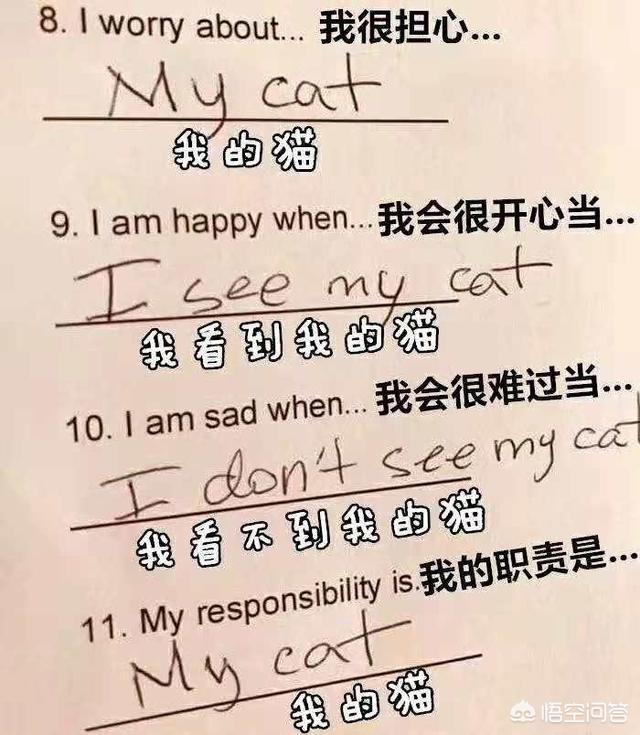 8. I worry about... 我很担心...
My cat
我的猫
9. I am happy when... 我会很开心当...
I see my cat
我看到我的猫
10. I am sad when... 我会很难过当...
I don't see my cat
我看不到我的猫
11. My responsibility is. 我的职责是...
My cat
我的猫
悟空问答